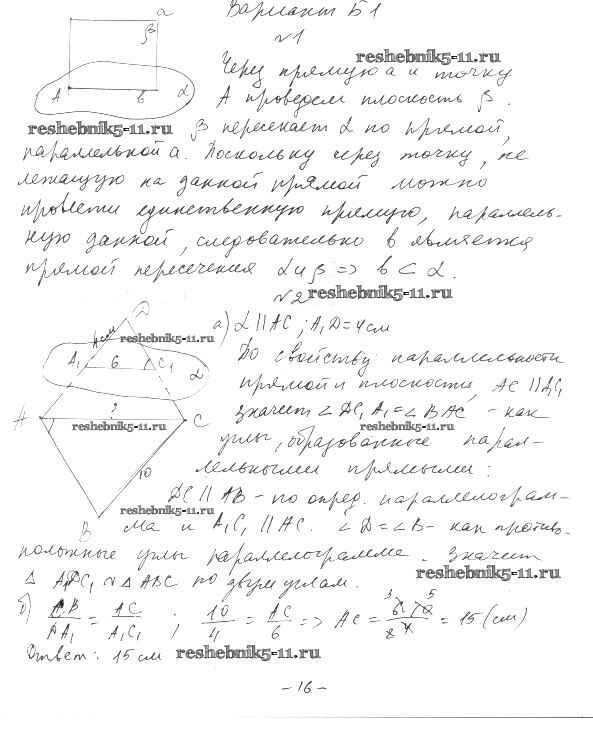 Вариант Б1
a
β
№1
reshebnik5-11.ru
Через прямую a и точку
A в α
А проведем плоскость β.
reshebnik5-11.ru
β пересекает α по прямой,
параллельной a. Поскольку через точку, не
лежащую на данной прямой можно
провести единственную прямую, параллель-
ную данной, следовательно в является
прямой пересечения α и β => b ⊂ α.
№2 reshebnik5-11.ru
D
а) α || AC; A₁D = 4 см
4 см reshebnik5-11.ru
A₁ 6 C₁ α
По свойству параллельности
прямой и плоскости, AC || A₁C₁
A ? C
значит ∠DC₁A₁ = ∠BAC - как
reshebnik5-11.ru
углы, образованные парал-
10
лельными прямыми:
DC || AB - по опред. параллелограм-
reshebnik5-11.ru
B
ма и A₁C₁ || AC. ∠D = ∠B - как противо-
положные углы параллелограмма. Значит
reshebnik5-11.ru
Δ A₁DC₁ ∾ Δ ABC по двум углам.
б) CB/DA₁ = AC/A₁C₁ ; 10/4 = AC/6 => AC = 6·10/4 = 15 (см)
Ответ: 15 см reshebnik5-11.ru
- 16 -